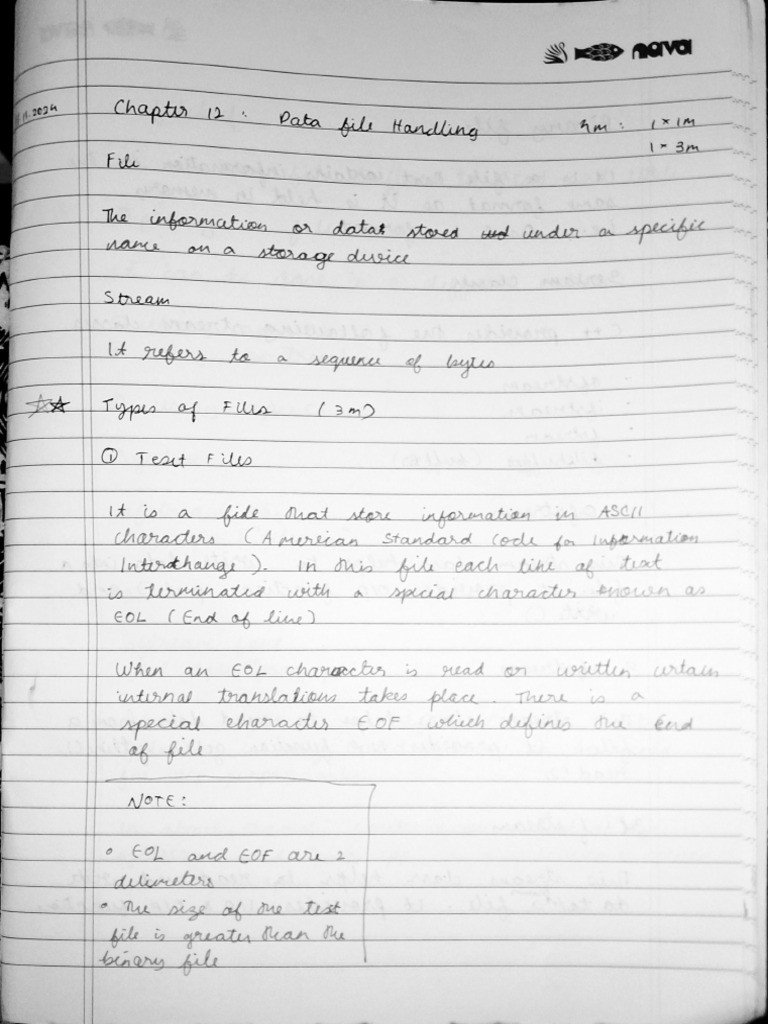 nava
11.2024
Chapter 12 : Data file Handling 4m : 1 × 1m
1 × 3m
File
The information or data stored under a specific
name on a storage device
Stream
It refers to a sequence of bytes
Types of Files (3m)
① Text Files
It is a file that store information in ASCII
characters (Amereican Standard Code for Information
Interchange). In this file each line of text
is terminated with a special character known as
EOL (End of line)
When an EOL character is read or written certain
internal translations takes place. There is a
special character EOF which defines the End
of file
NOTE:
• EOL and EOF are 2
delimeters
• The size of the text
file is greater than the
binary file